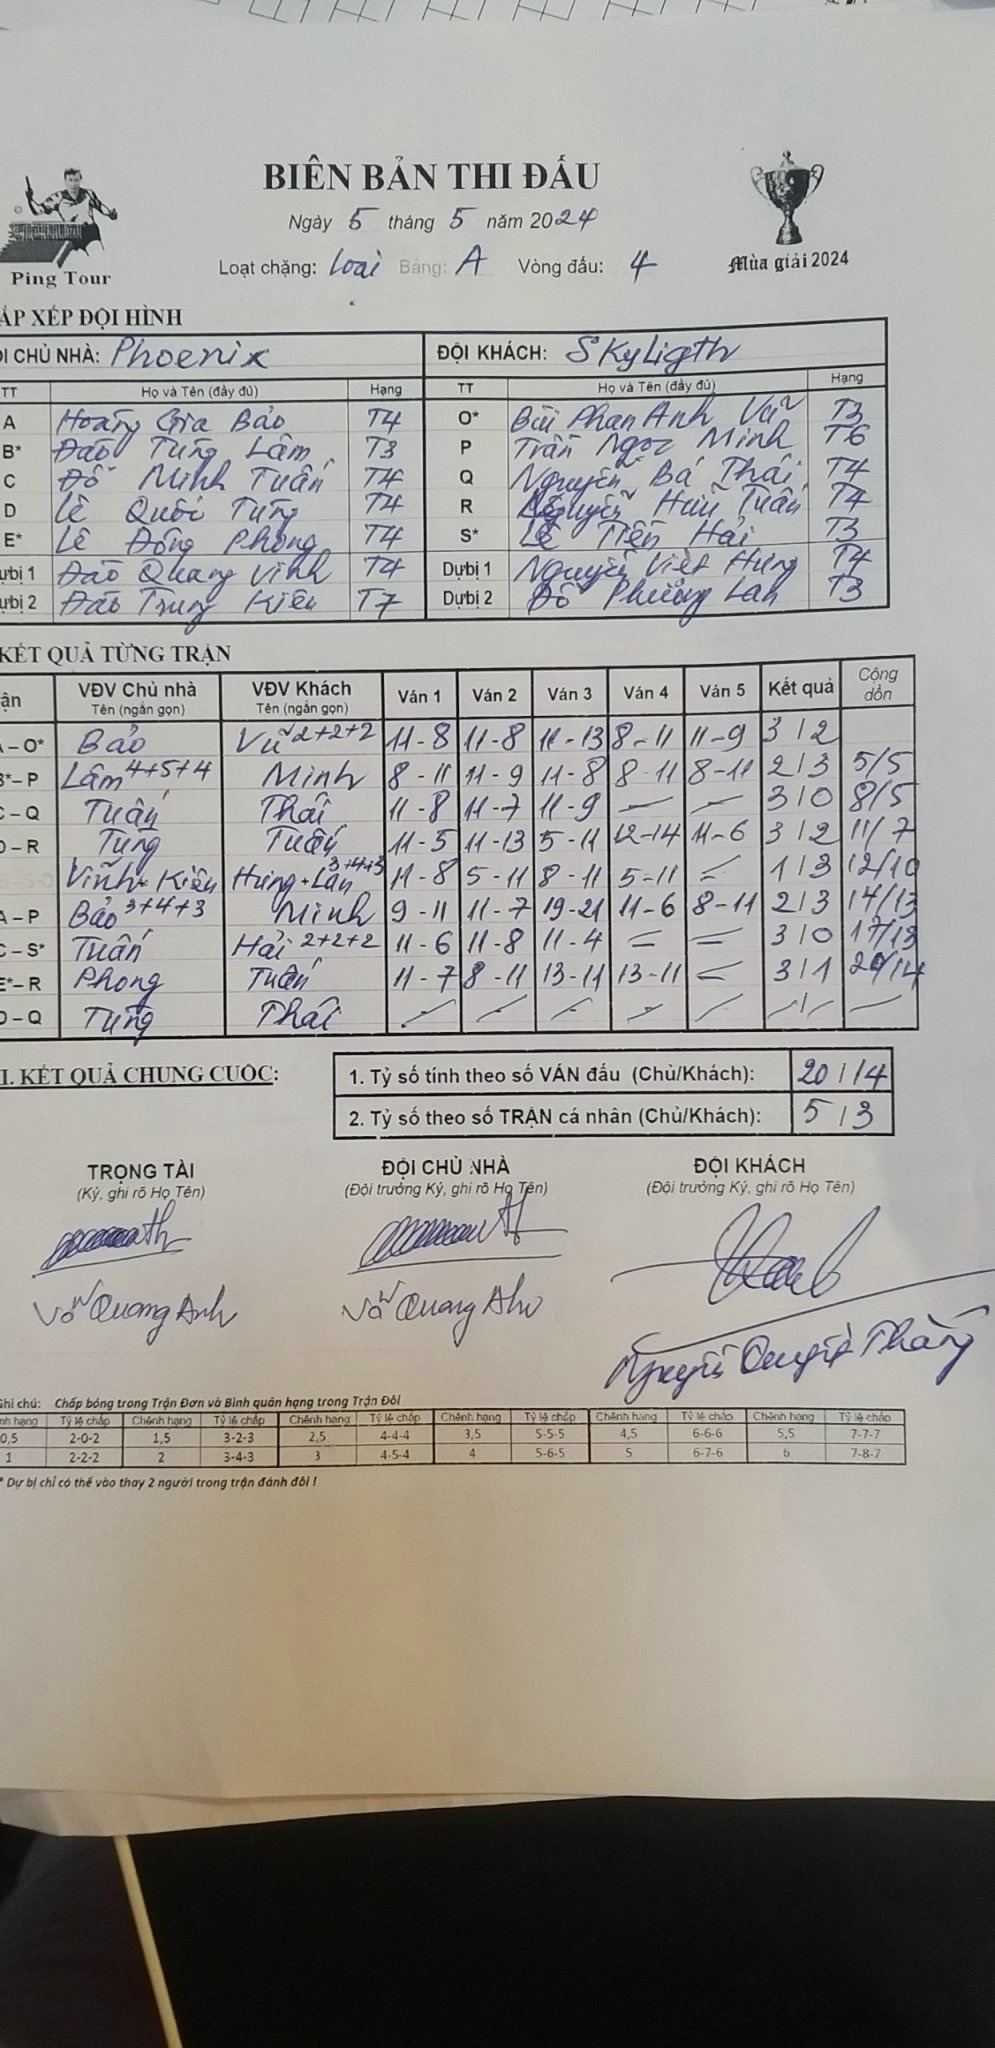 BIÊN BẢN THI ĐẤU
Ngày 5 tháng 5 năm 2024
Ping Tour
Loạt chặng: Loại Bảng: A Vòng đấu: 4
Mùa giải 2024
ẮP XẾP ĐỘI HÌNH
ỘI CHỦ NHÀ: Phoenix ĐỘI KHÁCH: SKyLigth
TT Họ và Tên (đầy đủ) Hạng TT Họ và Tên (đầy đủ) Hạng
A Hoàng Gia Bảo T4 O* Bùi Phan Anh Vũ T3
B* Đào Tùng Lâm T3 P Trần Ngọc Minh T6
C Đỗ Minh Tuấn T4 Q Nguyễn Bá Thái T4
D Lê Quốc Tùng T4 R Nguyễn Hữu Tuấn T4
E* Lê Đông Phong T4 S* Lê Tiến Hải T3
ự bị 1 Đào Quang Vinh T4 Dự bị 1 Nguyễn Việt Hưng T4
ự bị 2 Đào Trung Kiên T7 Dự bị 2 Đỗ Phương Lan T3
KẾT QUẢ TỪNG TRẬN
ận VĐV Chủ nhà VĐV Khách Ván 1 Ván 2 Ván 3 Ván 4 Ván 5 Kết quả Cộng dồn
Tên (ngắn gọn) Tên (ngắn gọn)
– O* Bảo Vũ 2+2+2 11-8 11-8 11-13 8-11 11-9 3/2
*– P Lâm 4+5+4 Minh 8-11 11-9 11-8 8-11 8-11 2/3 5/5
C – Q Tuấn Thái 11-8 11-7 11-9 – – 3/0 8/5
D – R Tùng Tuấn 11-5 11-13 5-11 12-14 11-6 3/2 11/7
Vinh + Kiên Hưng + Lan 3+4+3 11-8 5-11 8-11 5-11 = 1/3 12/10
A – P Bảo 3+4+3 Minh 9-11 11-7 19-21 11-6 8-11 2/3 14/13
C – S* Tuấn Hải 2+2+2 11-6 11-8 11-4 = = 3/0 17/13
E*– R Phong Tuấn 11-7 8-11 13-11 13-11 = 3/1 20/14
D – Q Tùng Thái / / / / / / —
I. KẾT QUẢ CHUNG CUỘC:
1. Tỷ số tính theo số VÁN đấu (Chủ/Khách): 20/14
2. Tỷ số theo số TRẬN cá nhân (Chủ/Khách): 5/3
TRỌNG TÀI ĐỘI CHỦ NHÀ ĐỘI KHÁCH
(Ký, ghi rõ Họ Tên) (Đội trưởng Ký, ghi rõ Họ Tên) (Đội trưởng Ký, ghi rõ Họ Tên)
Võ Quang Anh Võ Quang Anh
Nguyễn Quyết Thắng
Ghi chú: Chấp bóng trong Trận Đơn và Bình quân hạng trong Trận Đôi
nh hạng Tỷ lệ chấp Chênh hạng Tỷ lệ chấp Chênh hạng Tỷ lệ chấp Chênh hạng Tỷ lệ chấp Chênh hạng Tỷ lệ chấp Chênh hạng Tỷ lệ chấp
0,5 2-0-2 1,5 3-2-3 2,5 4-4-4 3,5 5-5-5 4,5 6-6-6 5,5 7-7-7
1 2-2-2 2 3-4-3 3 4-5-4 4 5-6-5 5 6-7-6 6 7-8-7
* Dự bị chỉ có thể vào thay 2 người trong trận đánh đôi !